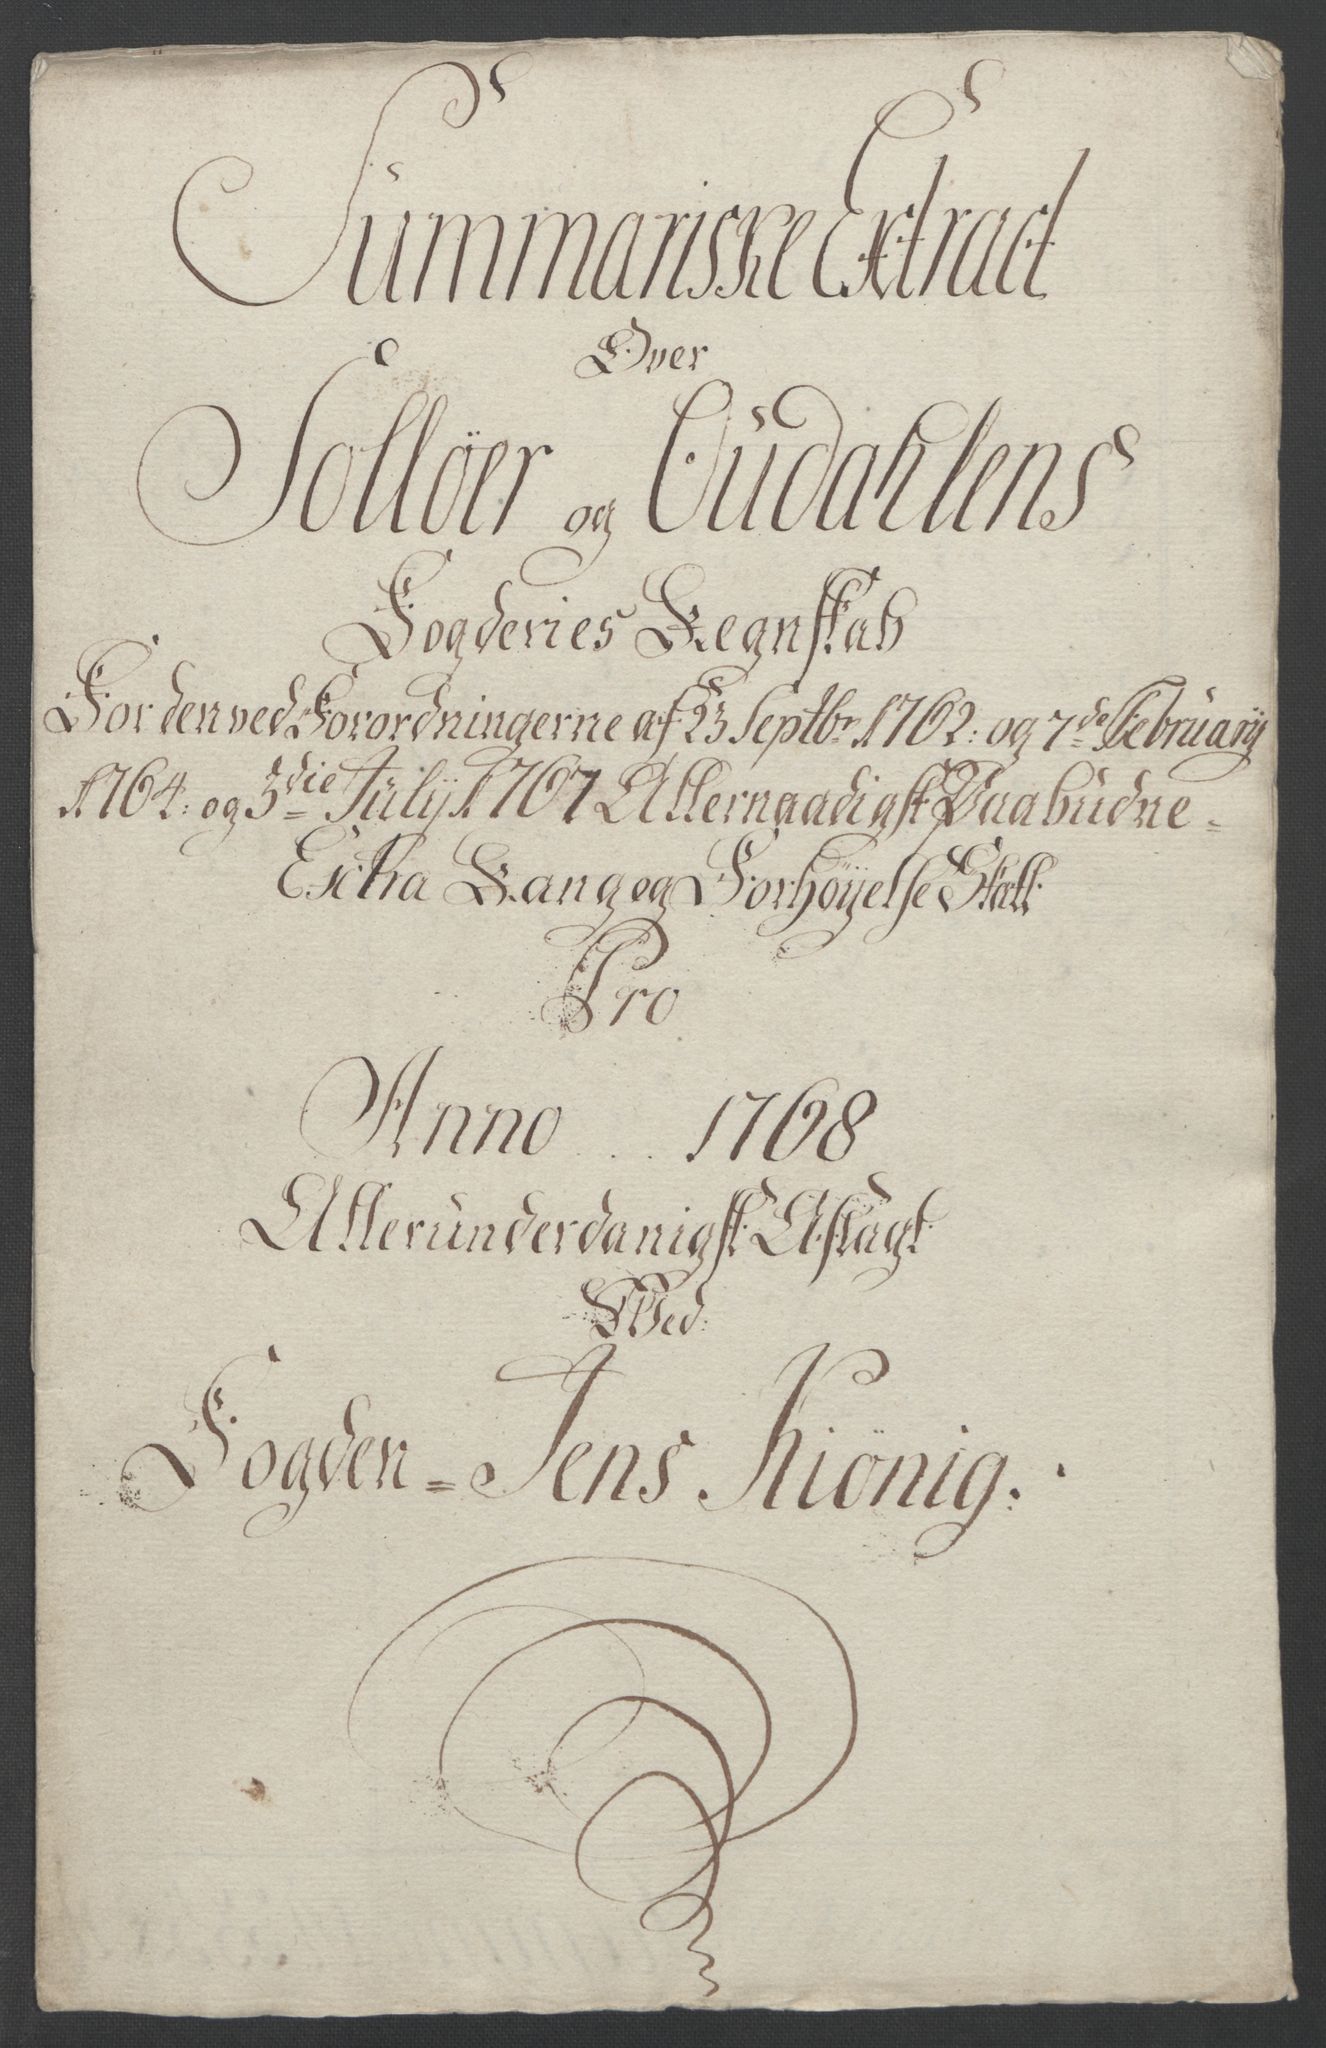 Summariske Extract
Over
Solløer og Oudahlens
Fogderies Regnskab
For den ved Forordningerne af 23 Septbr. 1762. og 7de February
1764. og 3die July 1767 Allernaadigst Paabudne
Extra Rang og Forhøyelse Skatt
Pro
Anno 1768
Allerunderdanigst Aflagt
Wed
Fogden Jens Kiönig.